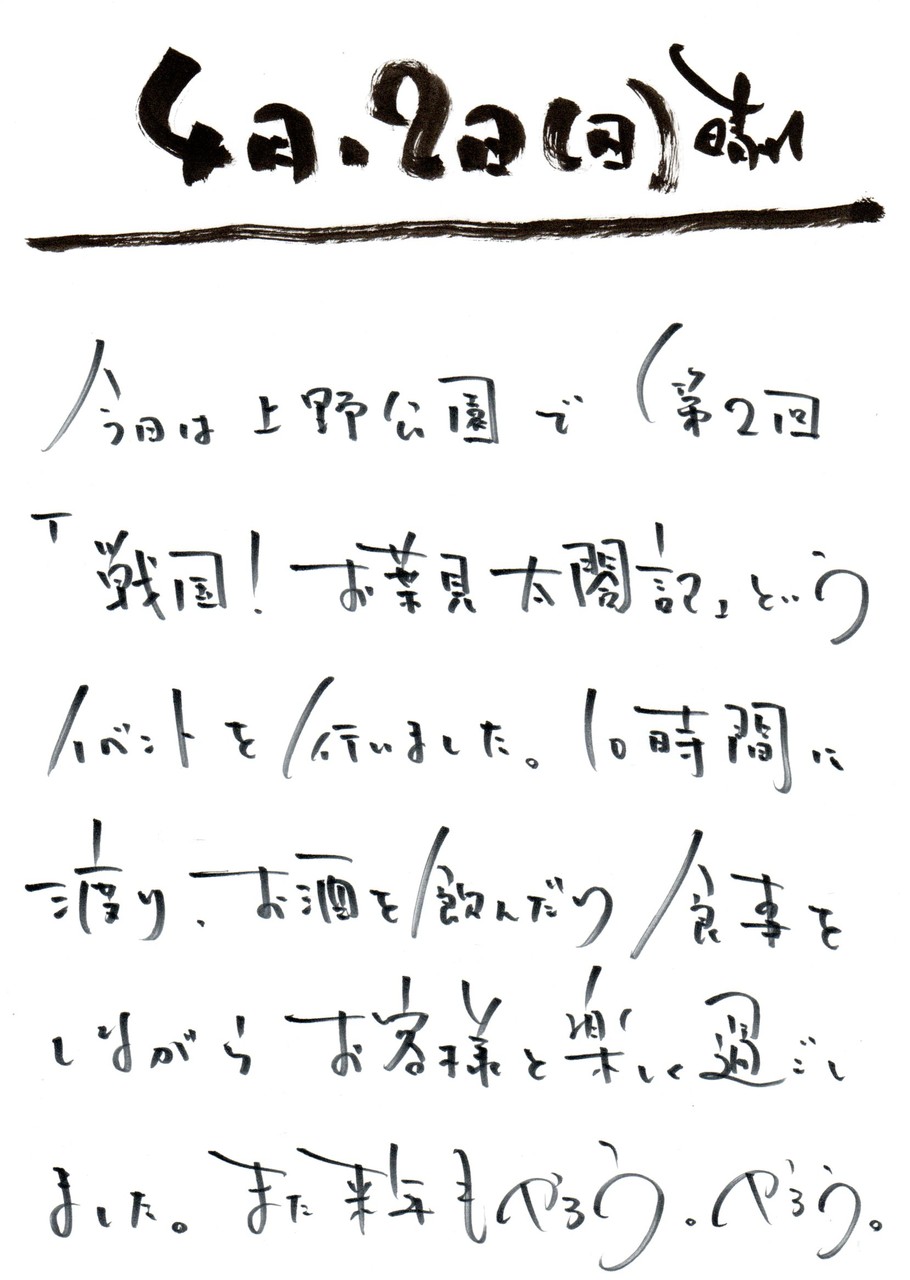 4月.2日(日)晴れ
今日は上野公園で第2回
「戦国!お葉見太閤記」という
イベントを行いました。10時間に
渡り、お酒を飲んだり食事を
しながらお客様と楽しく過ごし
ました。また来年もやろう。やろう。